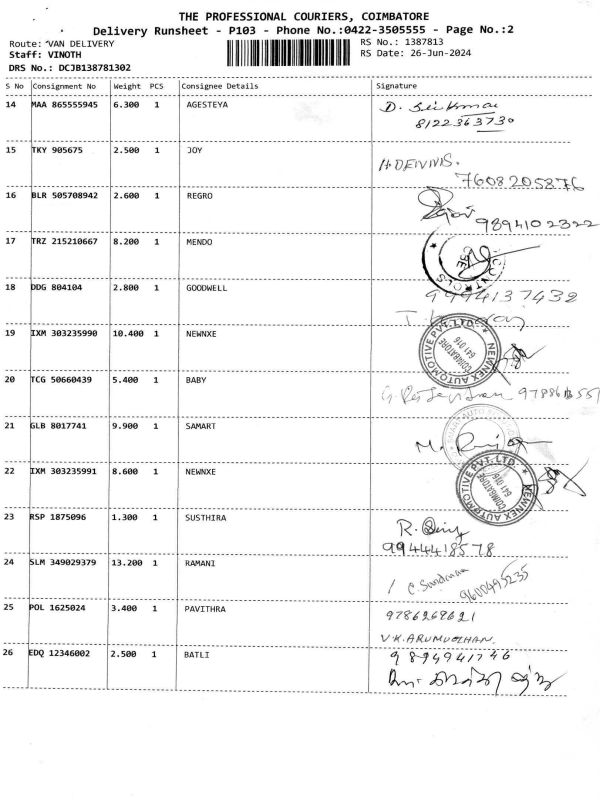 THE PROFESSIONAL COURIERS, COIMBATORE
Delivery Runsheet - P103 - Phone No.:0422-3505555 - Page No.:2
Route: VAN DELIVERY RS No.: 1387813
Staff: VINOTH RS Date: 26-Jun-2024
DRS No.: DCJB138781302
S No Consignment No Weight PCS Consignee Details Signature
14 MAA 865555945 6.300 1 AGESTEYA
8122363730
15 TKY 905675 2.500 1 JOY
7608205876
16 BLR 505708942 2.600 1 REGRO
9894102322
17 TRZ 215210667 8.200 1 MENDO
18 DDG 804104 2.800 1 GOODWELL
9994137432
19 IXM 303235990 10.400 1 NEWNXE
NEWNEX AUTOMOTIVE PVT.LTD.
COIMBATORE
641 016
20 TCG 50660439 5.400 1 BABY
21 GLB 8017741 9.900 1 SAMART
22 IXM 303235991 8.600 1 NEWNXE
NEWNEX AUTOMOTIVE PVT.LTD.
COIMBATORE
641 016
23 RSP 1875096 1.300 1 SUSTHIRA
9944418578
24 SLM 349029379 13.200 1 RAMANI
9600495235
25 POL 1625024 3.400 1 PAVITHRA
9786269621
V.K.ARUMUGHAN
26 EDQ 12346002 2.500 1 BATLI
9894941746